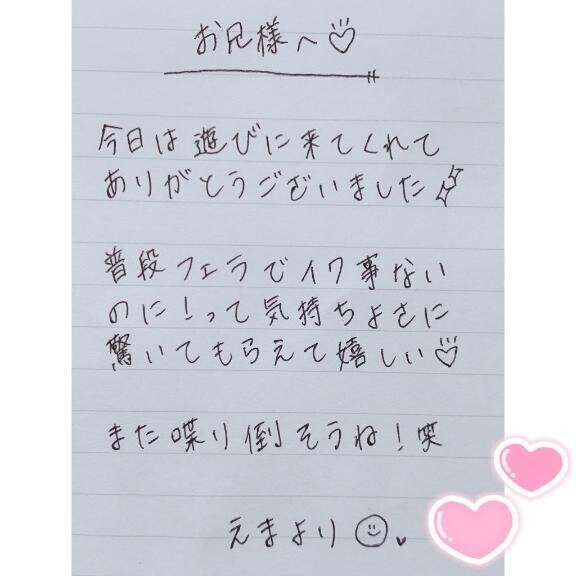 お兄様へ♡
今日は遊びに来てくれて
ありがとうございました
普段フェラでイク事ない
のに！って気持ちよさに
驚いてもらえて嬉しい♡
また喋り倒そうね！笑
えまより